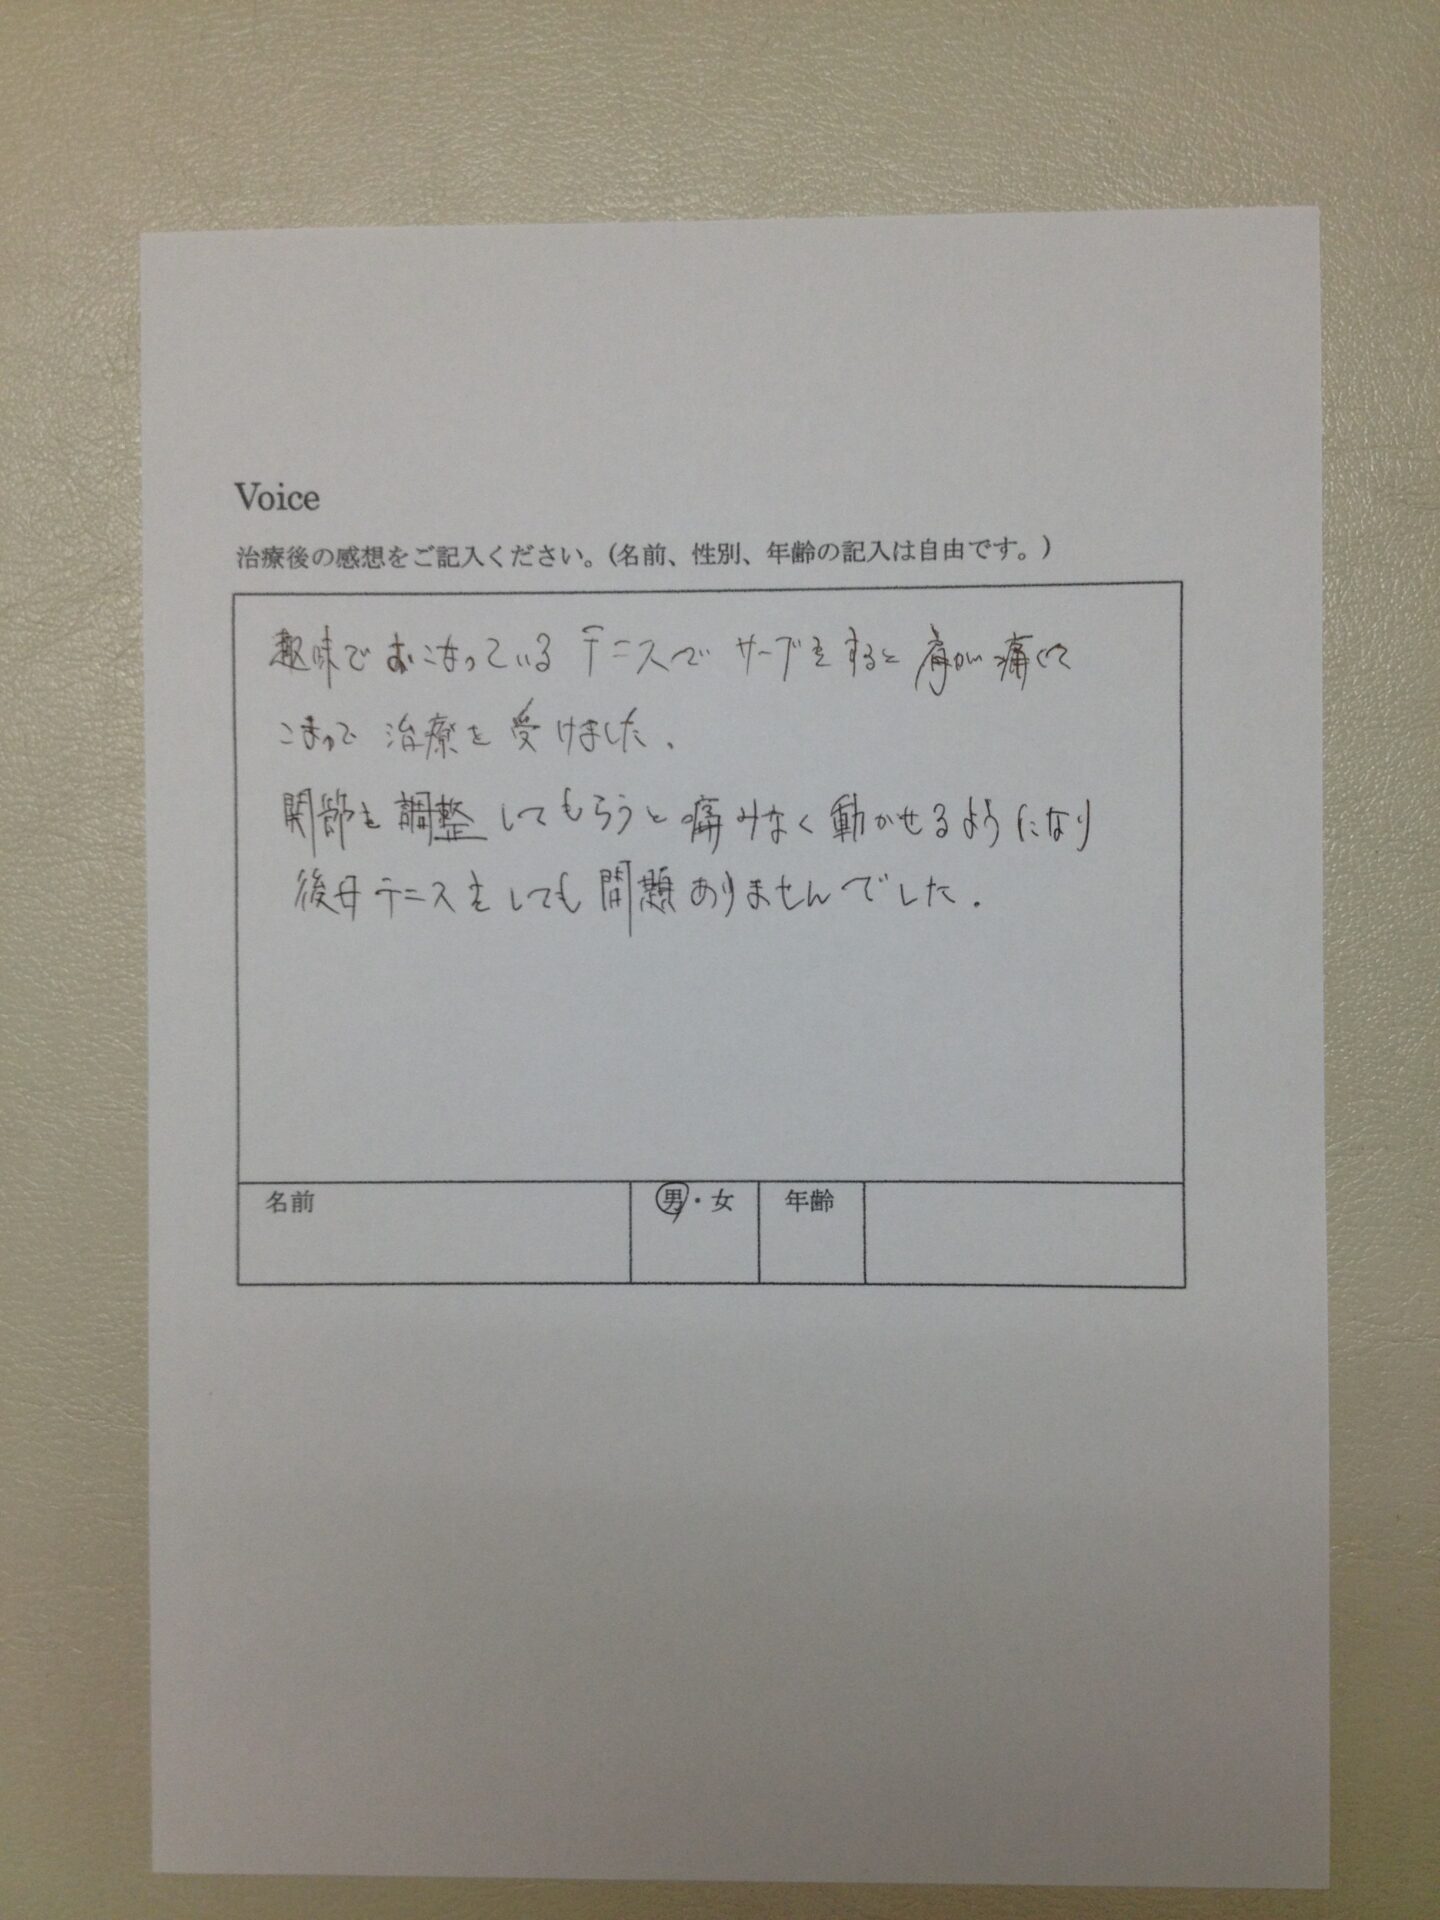 Voice
治療後の感想をご記入ください。(名前、性別、年齢の記入は自由です。)
趣味でおこなっているテニスでサーブをすると肩が痛くて
こまって治療を受けました。
関節を調整してもらうと痛みなく動かせるようになり
後日テニスをしても問題ありませんでした。
名前 男・女 年齢